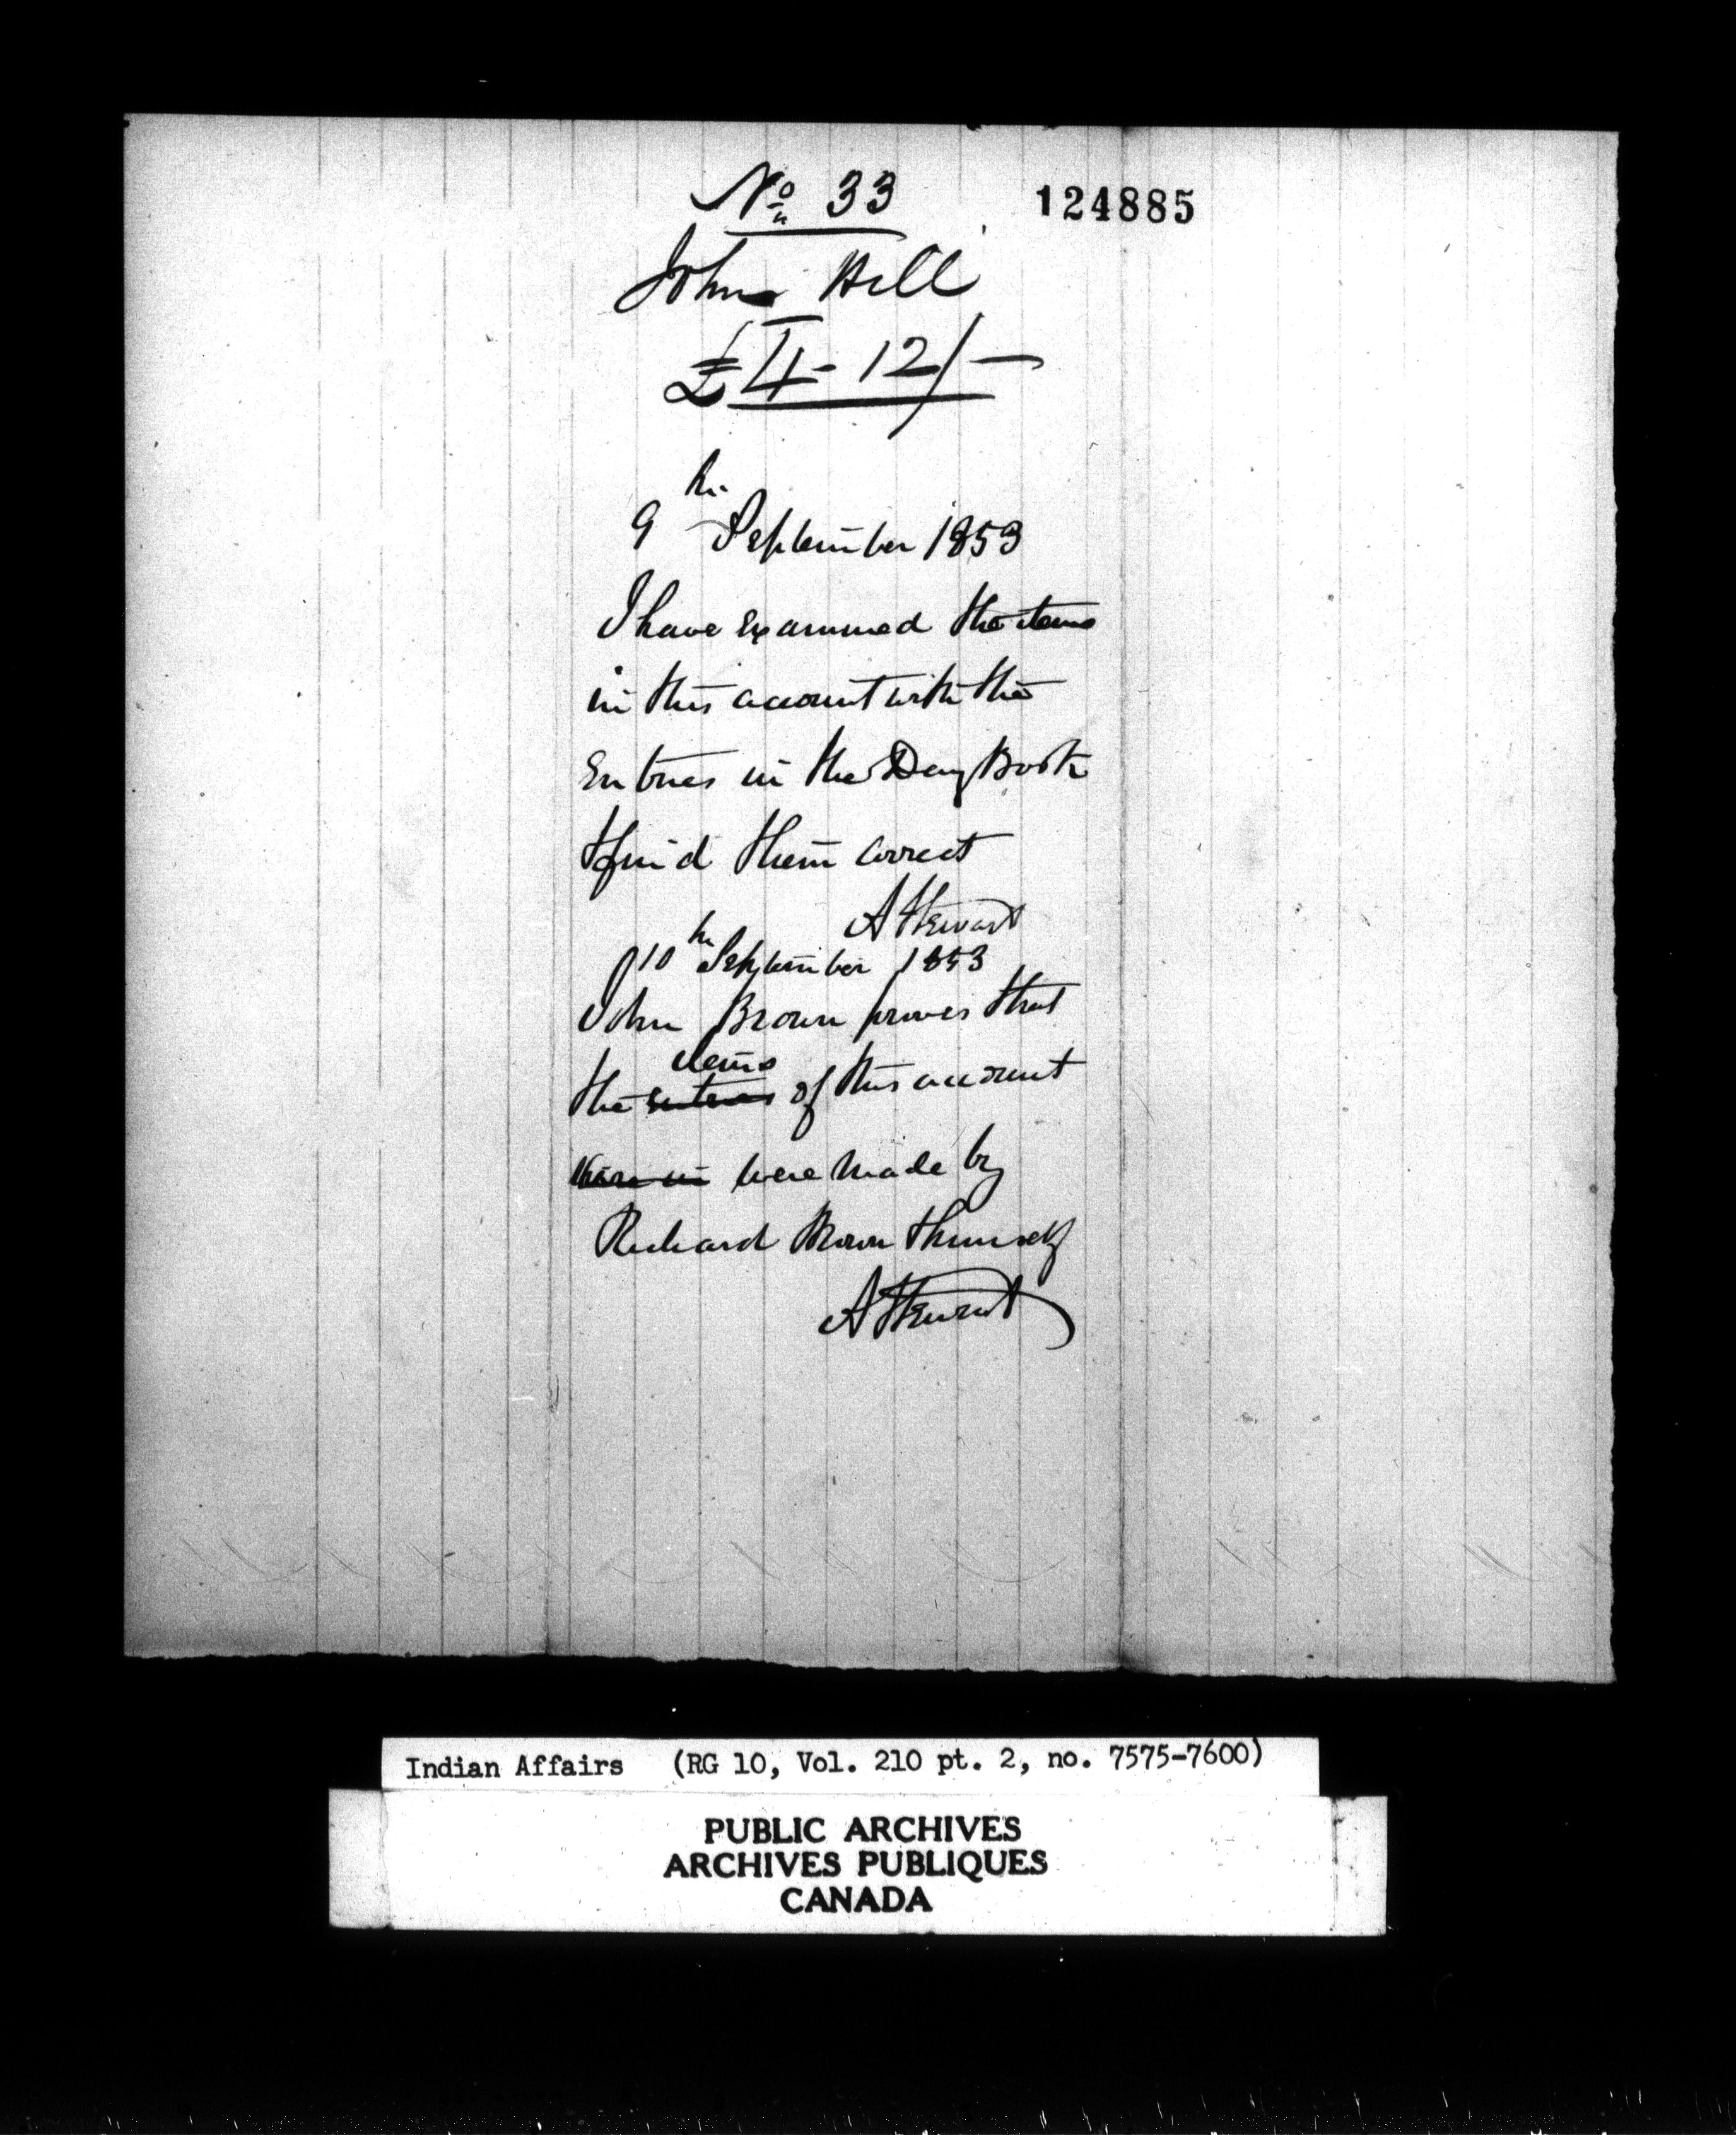 No 33
124885
John Hill
£4-12/-
9th September 1853
I have examined the items
in this account with the
Entries in the Day Book
& find them correct
A Stewart
10th September 1853
John Brown proves that
items
the entries of this account
were made by
Richard Brown & himself
A Stewart
Indian Affairs (RG 10, Vol. 210 pt. 2, no. 7575-7600)
PUBLIC ARCHIVES
ARCHIVES PUBLIQUES
CANADA